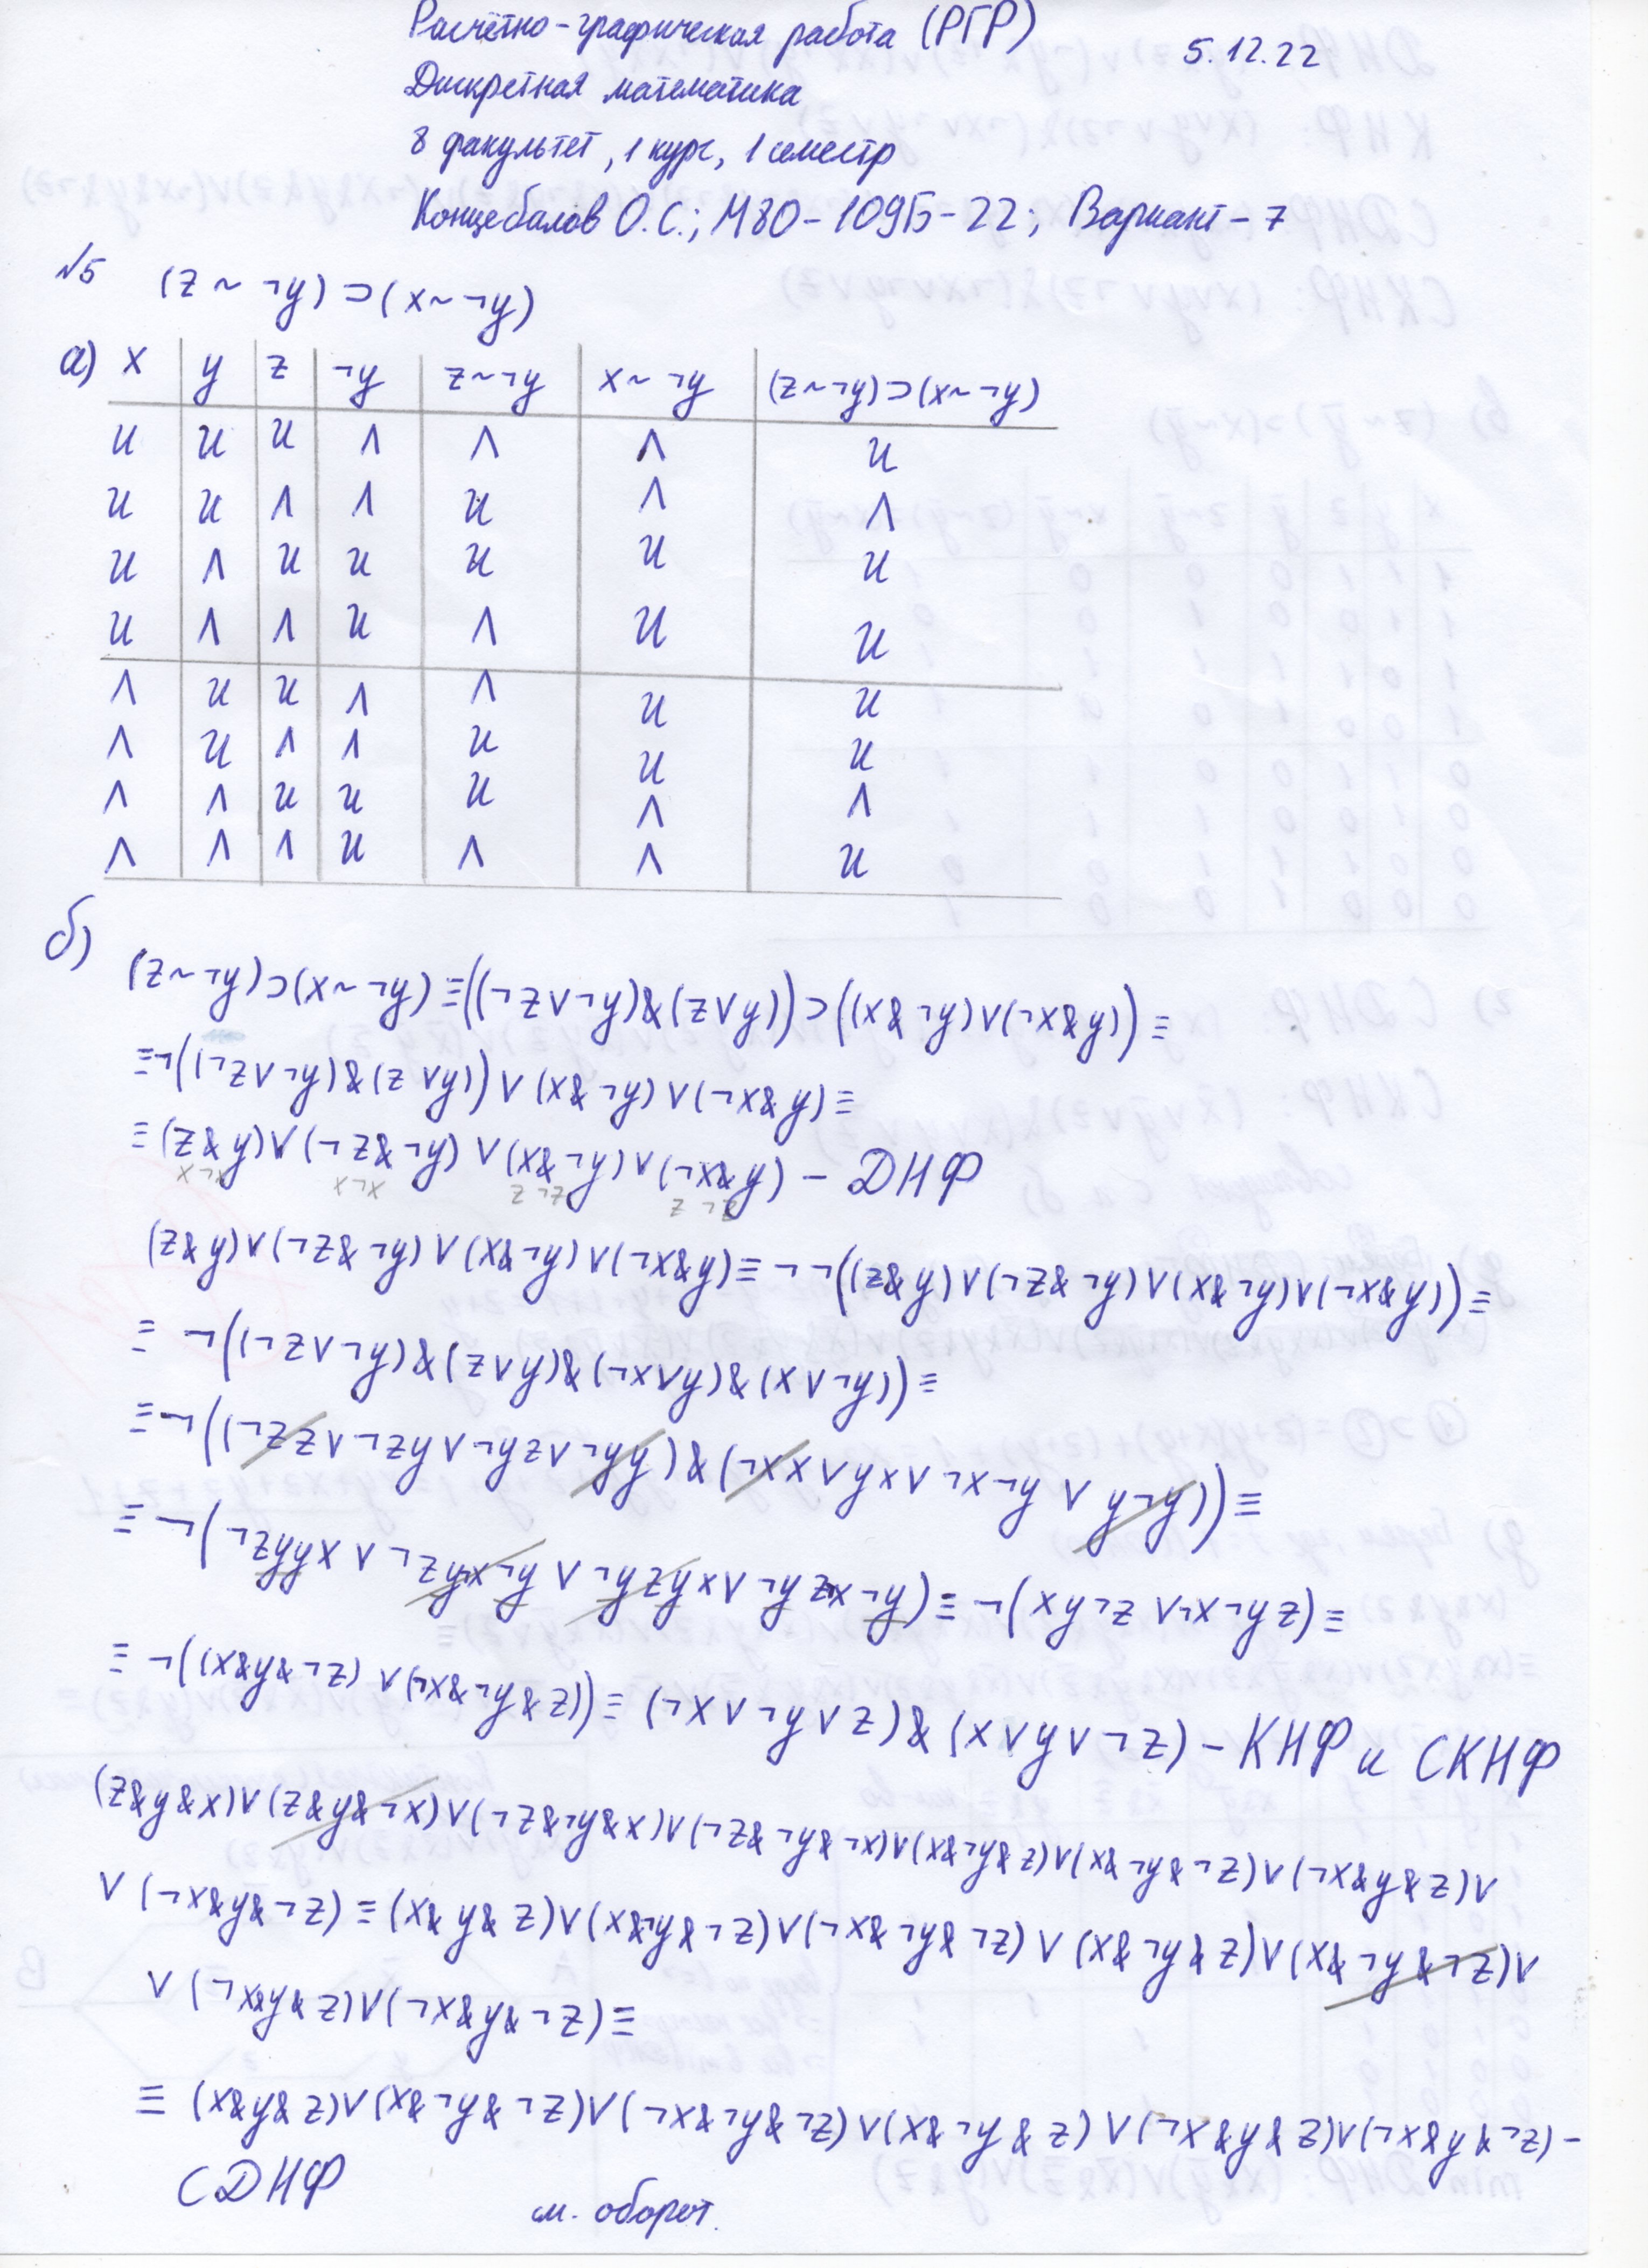 Расчётно-графическая работа (РГР) 5.12.22
Дискретная математика
8 факультет, 1 курс, 1 семестр
Концебалов О.С.; М8О-109Б-22; Вариант-7
№5 (z ~ ¬y) ⊃ (x ~ ¬y)
а) x y z ¬y z~¬y x~¬y (z~¬y)⊃(x~¬y)
и и и л л л и
и и л л и л л
и л и и и и и
и л л и л и и
л и и л л и и
л и л л и и и
л л и и и л л
л л л и л л и
б) (z~¬y)⊃(x~¬y) ≡ ((¬z∨¬y)&(z∨y)) ⊃ ((x&¬y)∨(¬x&y)) ≡
≡ ¬((¬z∨¬y)&(z∨y)) ∨ (x&¬y) ∨ (¬x&y) ≡
≡ (z&y)∨(¬z&¬y) ∨ (x&¬y) ∨ (¬x&y) – ДНФ
x ¬x x ¬x z ¬z z ¬z
(z&y)∨(¬z&¬y)∨(x&¬y)∨(¬x&y) ≡ ¬¬((z&y)∨(¬z&¬y)∨(x&¬y)∨(¬x&y)) ≡
≡ ¬((¬z∨¬y)&(z∨y)&(¬x∨y)&(x∨¬y)) ≡
≡ ¬((¬zz∨¬zy∨¬yz∨¬yy)&(¬xx∨yx∨¬x¬y∨y¬y)) ≡
≡ ¬(¬zyyx ∨ ¬zy¬x¬y ∨ ¬yzyx ∨ ¬yz¬x¬y) ≡ ¬(xy¬z ∨ ¬x¬yz) ≡
≡ ¬((x&y&¬z) ∨ (¬x&¬y&z)) ≡ (¬x∨¬y∨z)&(x∨y∨¬z) – КНФ и СКНФ
(z&y&x)∨(z&y&¬x)∨(¬z&¬y&x)∨(¬z&¬y&¬x)∨(x&¬y&z)∨(x&¬y&¬z)∨(¬x&y&z)∨
∨(¬x&y&¬z) ≡ (x&y&z)∨(x&¬y&¬z)∨(¬x&¬y&¬z)∨(x&¬y&z)∨(x&¬y&¬z)∨
∨(¬x&y&z)∨(¬x&y&¬z) ≡
≡ (x&y&z)∨(x&¬y&¬z)∨(¬x&¬y&¬z)∨(x&¬y&z)∨(¬x&y&z)∨(¬x&y&¬z) –
СДНФ
см. оборот.